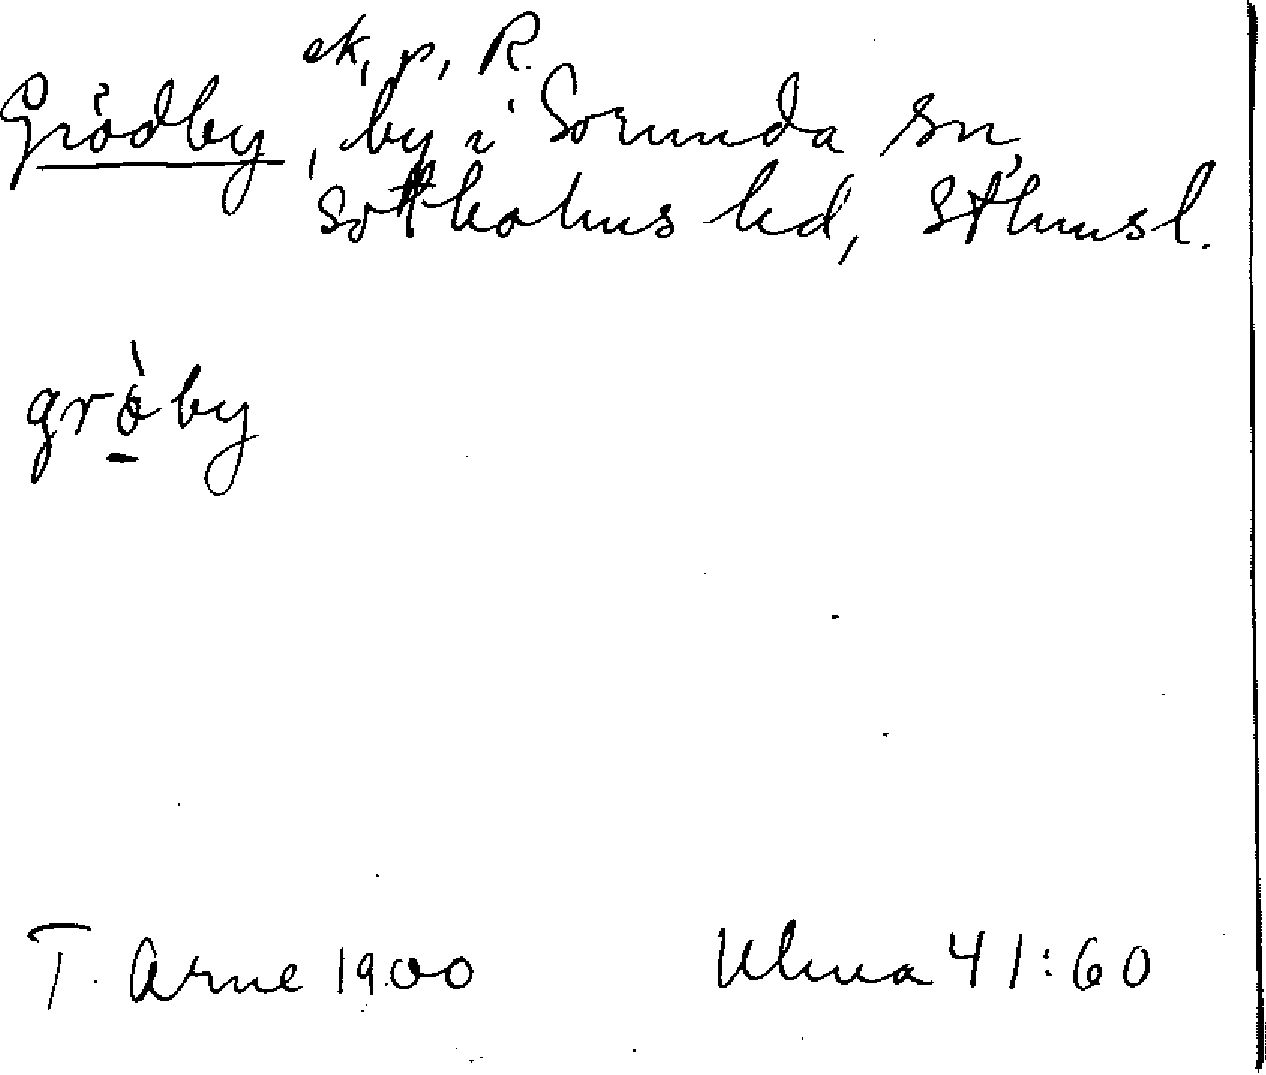 ek, p, R.
Grödby, by i Sorunda sn,
Sotholms hd, Sthmsl.
grö̀by
T. Arne 1900
Ulma 41:60